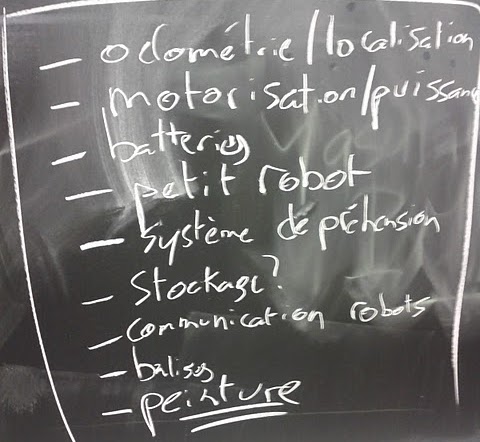 - odométrie/localisation
- motorisation/puissance
- batteries
- petit robot
- système de préhension
- stockage?
- communication robots
- balises
- peinture